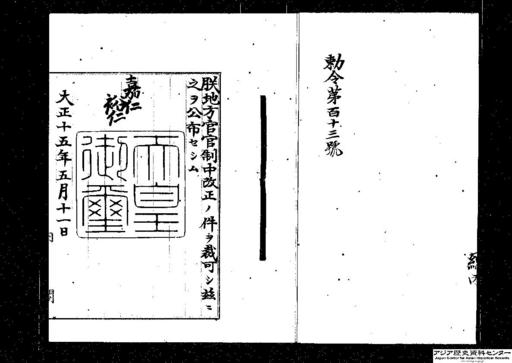 勅令第百十三號
朕地方官官制中改正ノ件ヲ裁可シ茲ニ
之ヲ公布セシム
嘉仁
裕仁
天皇
御璽
大正十五年五月十一日
内閣
アジア歴史資料センター
Japan Center for Asian Historical Records